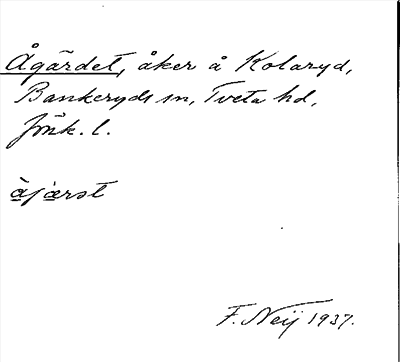 Ågärdet, åker å Kolaryd,
Bankeryds sn, Tveta hd,
Jönk. l.
àjærst
F. Neij 1937.